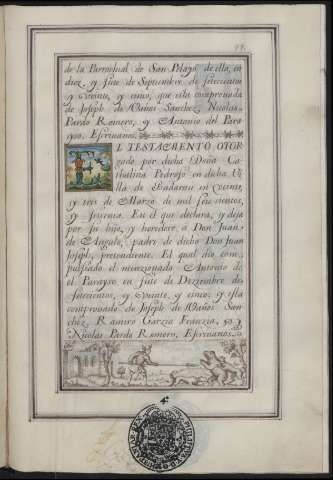 de la Parrochial de San Pelayo de ella, en
diez, y siete de Septiembre de setecientos
y Veinte, y cinco, que esta comprovada
de Joseph de Baños Sanchez, Nicolas
Pardo Romero, y Antonio del Para
yso, Escrivanos.
EL TESTAMENTO OTOR
gado por dicha Doña Ca
thalina Pedroso en dicha Vi
lla de Badaran en Veinte,
y tres de Marzo de mil seiscientos,
y setenta. En el que declara, y deja
por su hijo, y heredero a Don Juan
de Angulo, padre de dicho Don Juan
Joseph, pretendiente. El qual dio com
pulsado el mencionado Antonio de
el Parayso en siete de Deziembre de
setecientos, y Veinte, y cinco; y esta
comprovado de Joseph de Baños San
chez, Ramiro Garzia
Nicolas Pardo Romero, Escrivanos